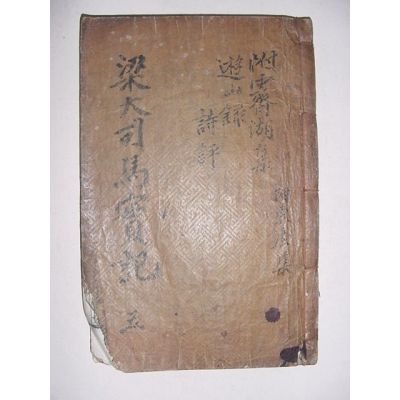 附霽湖集
遊山錄
詩評
梁大司馬實記